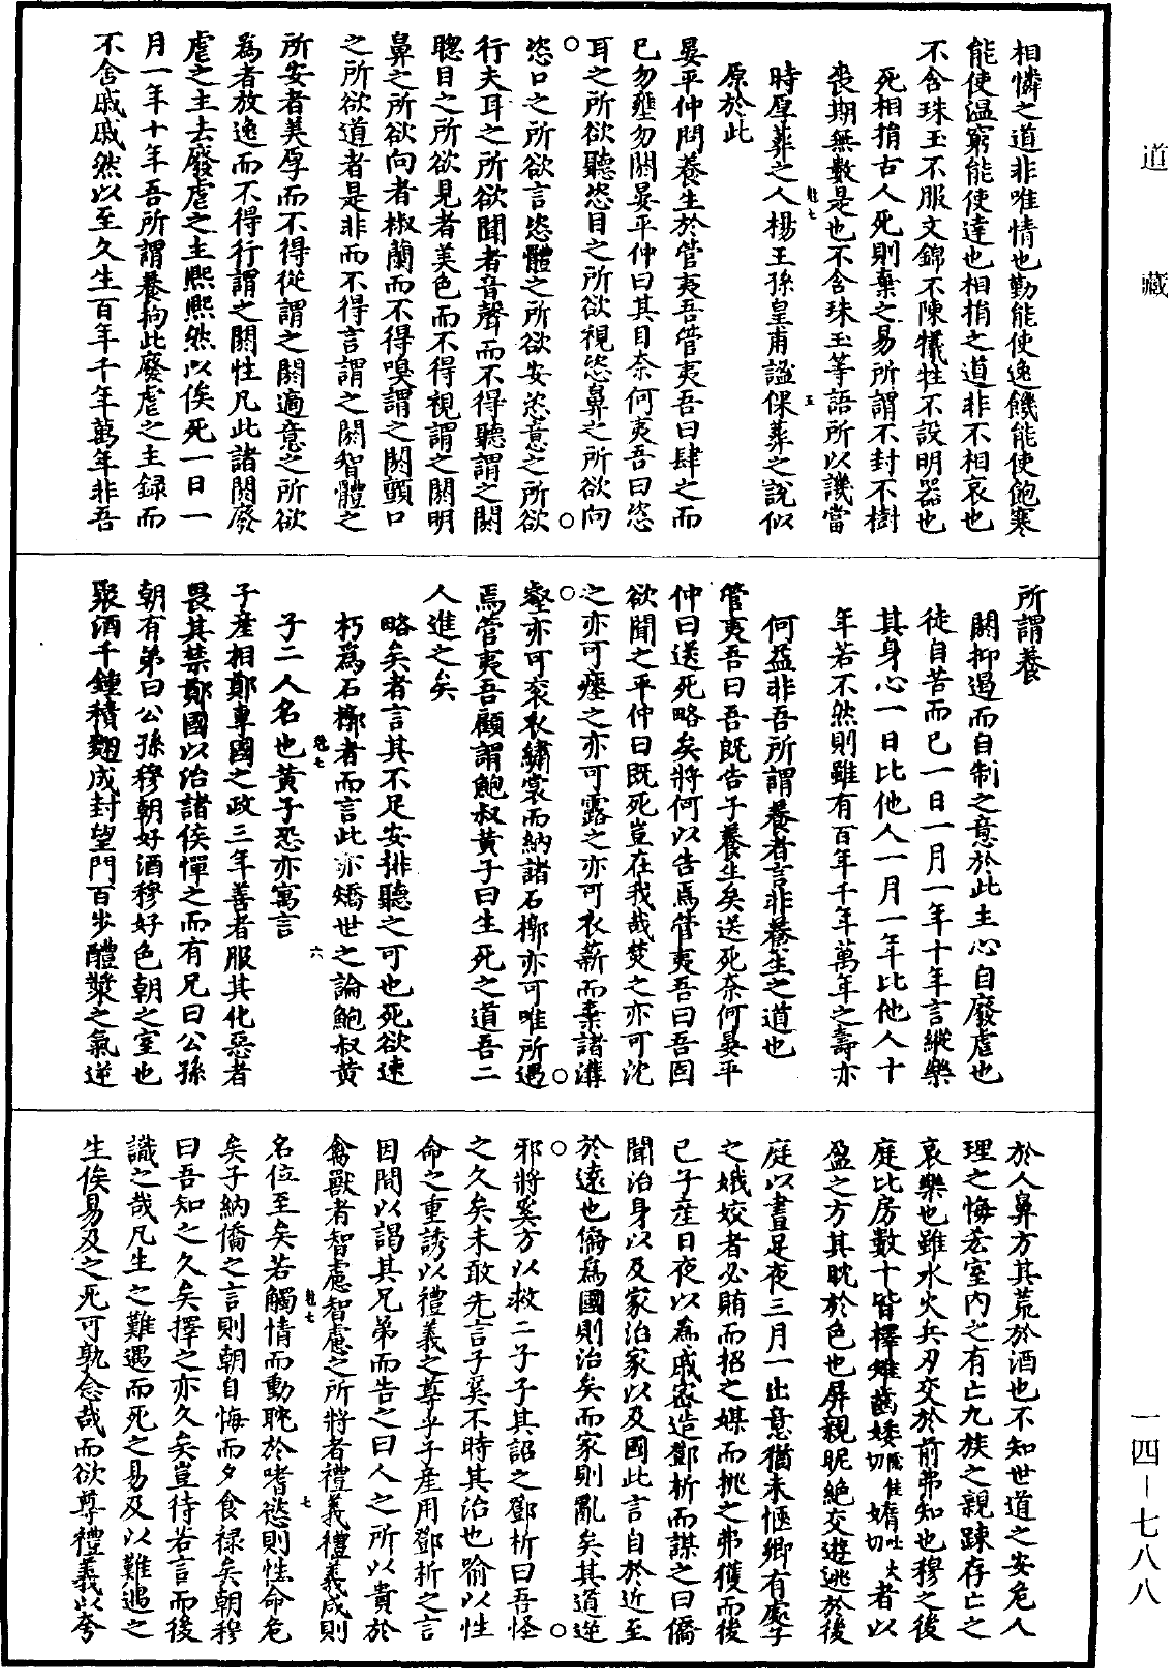 道藏
相憐之道非唯情也勤能使逸饑能使飽寒
能使溫窮能使達也相捐之道非不相哀也
不含珠玉不服文錦不陳犧牲不設明器也
死相捐古人死則棄之易所謂不封不樹
喪期無數是也不含珠玉等語所以譏當
時厚葬之人楊王孫皇甫謐倮葬之說似
原於此
晏平仲問養生於管夷吾管夷吾曰肆之而
已勿壅勿閼晏平仲曰其目奈何夷吾曰恣
耳之所欲聽恣目之所欲視恣鼻之所欲向
恣口之所欲言恣體之所欲安恣意之所欲
行夫耳之所欲聞者音聲而不得聽謂之閼
聰目之所欲見者美色而不得視謂之閼明
鼻之所欲向者椒蘭而不得嗅謂之閼顫口
之所欲道者是非而不得言謂之閼智體之
所安者美厚而不得從謂之閼適意之所欲
為者放逸而不得行謂之閼性凡此諸閼廢
虐之主去廢虐之主熙熙然以俟死一日一
月一年十年吾所謂養拘此廢虐之主録而
不舍戚戚然以至久生百年千年萬年非吾
所謂養
閼抑遏而自制之意於此主心自廢虐也
徒自苦而已一日一月一年十年言縱樂
其身心一日比他人一月一年比他人十
年若不然則雖有百年千年萬年之壽亦
何益非吾所謂養者言非養生之道也
管夷吾曰吾既告子養生矣送死奈何晏平
仲曰送死略矣將何以告焉管夷吾曰吾固
欲聞之平仲曰既死豈在我哉焚之亦可沈
之亦可瘞之亦可露之亦可衣薪而棄諸溝
壑亦可衮衣繡裳而納諸石槨亦可唯所遇
焉管夷吾顧謂鮑叔黃子曰生死之道吾二
人進之矣
略矣者言其不足安排聽之可也死欲速
朽為石槨者而言此亦矯世之論鮑叔黃
子二人名也黃子恐亦寓言
子產相鄭專國之政三年善者服其化惡者
畏其禁鄭國以治諸侯憚之而有兄曰公孫
朝有弟曰公孫穆朝好酒穆好色朝之室也
聚酒千鍾積麴成封望門百步醴漿之氣逆
於人鼻方其荒於酒也不知世道之安危人
理之悔吝室內之有亡九族之親踈存亡之
哀樂也雖水火兵刃交於前弗知也穆之後
庭比房數十皆擇稚齒婑媠者以
盈之方其眈於色也屏親昵絶交遊逃於後
庭以晝足夜三月一出意猶未愜鄉有處子
之娥姣者必賄而招之媒而挑之弗獲而後
已子產日夜以為戚密造鄧析而謀之曰僑
聞治身以及家治家以及國此言自於近至
於遠也僑為國則治矣而家則亂矣其道逆
邪將奚方以救二子子其詔之鄧析曰吾怪
之久矣未敢先言子奚不時其治也喻以性
命之重誘以禮義之尊乎子產用鄧析之言
因間以謁其兄弟而告之曰人之所以貴於
禽獸者智慮智慮之所將者禮義禮義成則
名位至矣若觸情而動眈於嗜慾則性命危
矣子納僑之言則朝自悔而夕食祿矣朝穆
曰吾知之久矣擇之亦久矣豈待若言而後
識之哉凡生之難遇而死之易及以難遇之
生俟易及之死可孰念哉而欲尊禮義以夸
一四－七八八